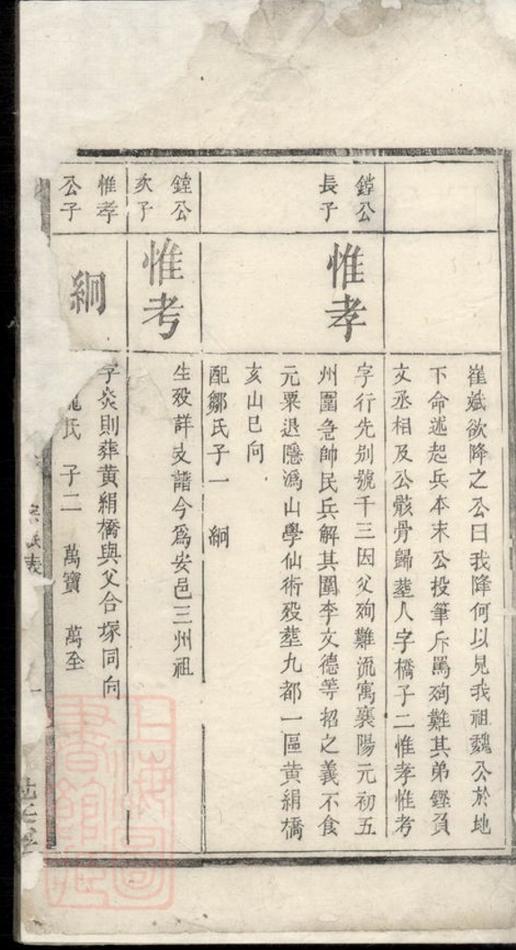 崔斌欲降之公曰我降何以見我祖魏公於地
下命述起兵本末公投筆斥罵殉難其弟鏗負
文丞相及公骸骨歸塟人字橋子二惟孝惟考
鏜公
長子
惟孝
字行先别號千三因父殉難流寓襄陽元初五
州圍急帥民兵解其圍李文德等招之義不食
元粟退隱溈山學仙術殁塟九都一區黄絹橋
亥山巳向
配鄒氏子一 絅
鏜公
次子
惟考
生殁詳支譜今爲安邑三州祖
惟孝
公子
絅
字炎則葬黄絹橋與父合塚同向
氏 子二 萬寶 萬全
上海圖書館藏